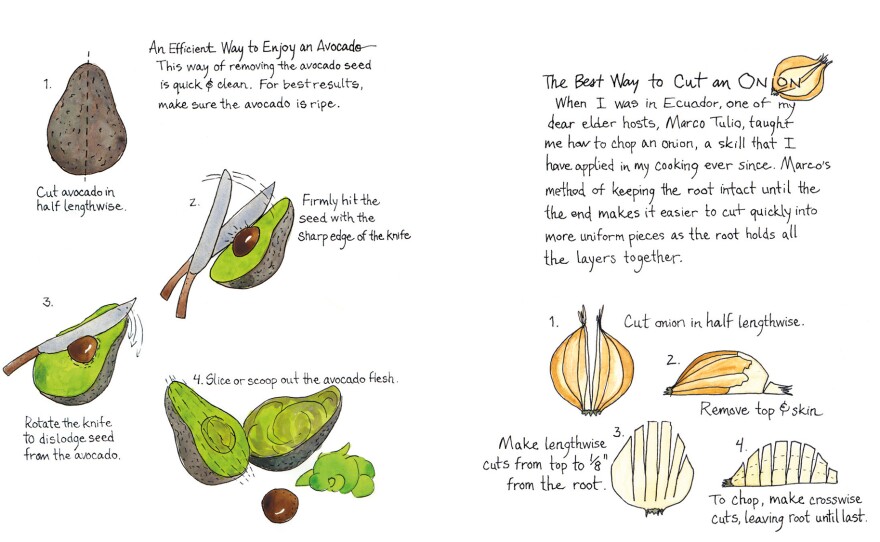 An Efficient Way to Enjoy an Avocado
This way of removing the avocado seed
is quick & clean. For best results,
make sure the avocado is ripe.
1.
Cut avocado in
half lengthwise.
2.
Firmly hit the
seed with the
sharp edge of the knife
3.
Rotate the knife
to dislodge seed
from the avocado.
4. Slice or scoop out the avocado flesh.
The Best Way to Cut an ONION
When I was in Ecuador, one of my
dear elder hosts, Marco Tulio, taught
me how to chop an onion, a skill that I
have applied in my cooking ever since. Marco's
method of keeping the root intact until the
the end makes it easier to cut quickly into
more uniform pieces as the root holds all
the layers together.
1.
Cut onion in half lengthwise.
2.
Remove top & skin
3.
Make lengthwise
cuts from top to 1/8"
from the root.
4.
To chop, make crosswise
cuts, leaving root until last.